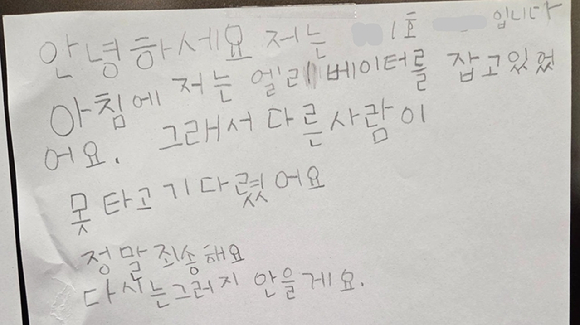 안녕하세요 저는 1호 입니다
아침에 저는 엘레베이터를 잡고있었
어요. 그래서 다른사람이
못 타고 기다렸어요
정말 죄송해요
다시는그러지 안을게요.